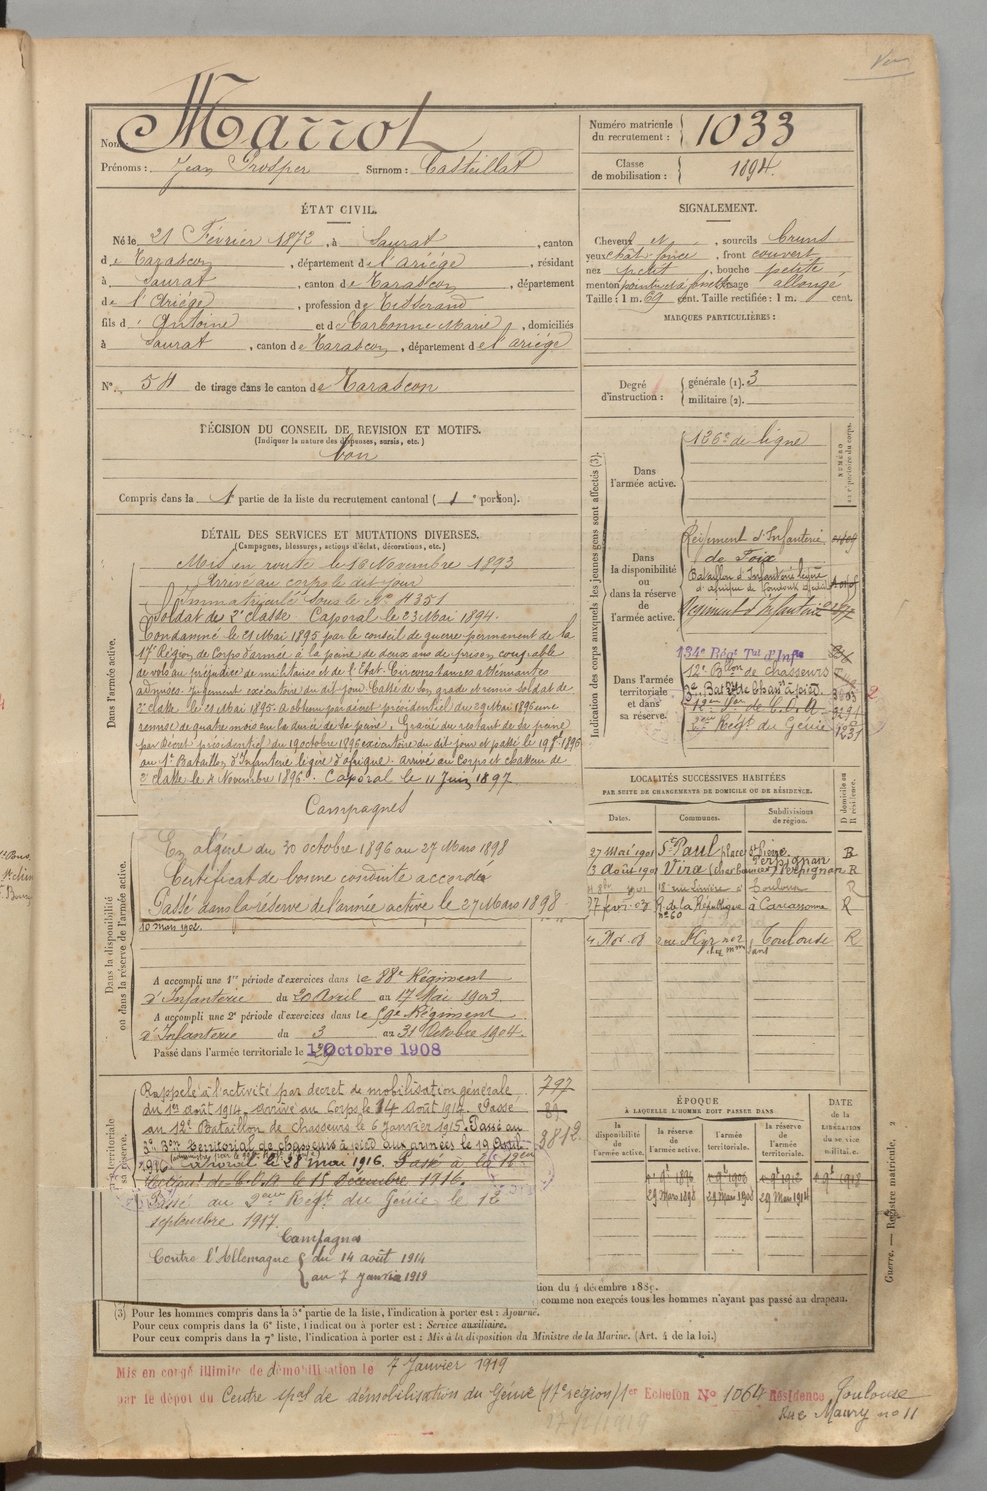 Vu
Nom : Marrot
Prénoms : Jean Prosper Surnom : Casteillat
Numéro matricule du recrutement : 1033
Classe de mobilisation : 1894.
ÉTAT CIVIL.
Né le 21 Février 1872, à Saurat, canton
de Tarascon, département de l'ariége, résidant
à Saurat, canton de Tarascon, département
de l'Ariége, profession de Tisserand
fils d' Antoine et de Carbonne Marie, domiciliés
à Saurat, canton de Tarascon, département de l'ariége
N° 54 de tirage dans le canton de Tarascon
SIGNALEMENT.
Cheveux et , sourcils bruns
yeux chât. foncé, front couvert
nez petit, bouche petite,
menton pointu et à fossette visage allongé
Taille : 1 m. 69 cent. Taille rectifiée : 1 m. cent.
MARQUES PARTICULIÈRES :
Degré d'instruction : générale (1). 3
militaire (2).
DÉCISION DU CONSEIL DE REVISION ET MOTIFS.
(Indiquer la nature des dispenses, sursis, etc.)
bon
Compris dans la 1e partie de la liste du recrutement cantonal ( 1e portion).
DÉTAIL DES SERVICES ET MUTATIONS DIVERSES.
(Campagnes, blessures, actions d'éclat, décorations, etc.)
Dans l'armée active.
Mis en route le 16 Novembre 1893
Arrivé au corps le dit jour
Immatriculé sous le N° 4351
Soldat de 2e classe. Caporal le 23 Mai 1894.
Condamné le 21 Mai 1895 par le conseil de guerre permanent de la
17e Région de Corps d'armée à la peine de deux ans de prison coupable
de vols au préjudice de militaires et de l'Etat. Circonstances atténuantes
admises. Jugement exécutoire du dit jour. Cassé de son grade et remis soldat de
2e classe le 21 Mai 1895. A obtenu par décret présidentiel du 29 Mai 1896 une
remise de quatre mois sur la durée de sa peine. Gracié du restant de sa peine
par décret présidentiel du 19 octobre 1896 exécutoire du dit jour et passé le 19 8bre 1896
au 1e Bataillon d'Infanterie légère d'afrique. arrivé au Corps et chasseur de
2e classe le 2 Novembre 1896. Caporal le 11 Juin 1897
Campagnes
En algérie du 30 octobre 1896 au 27 Mars 1898
Certificat de bonne conduite accordé
Passé dans la réserve de l'armée active le 27 Mars 1898
Dans la disponibilité ou dans la réserve de l'armée active.
10 mars 1902.
A accompli une 1re période d'exercices dans le 88e Régiment
d'Infanterie du 20 Avril au 17 Mai 1903.
A accompli une 2e période d'exercices dans le 59e Régiment
d'Infanterie du 3 au 31 Octobre 1904.
Passé dans l'armée territoriale le 1er Octobre 1908
territoriale sa réserve.
Rappelé à l'activité par decret de mobilisation générale
du 1er août 1914, arrivé au Corps le 14 Août 1914. Passé
au 12e Bataillon de Chasseurs le 6 Janvier 1915. Passé au
3e Bon territorial de chasseurs à pied aux armées le 19 Avril
1916. Caporal le 28 mai 1916. Passé à la 12e
le 15 décembre 1916.
Passé au 2eme Regt du Génie le 12
septembre 1917.
Campagnes
Contre l'Allemagne du 14 août 1914
au 7 janvier 1919
797
3812.
Indication des corps auxquels les jeunes gens sont affectés (3).
NUMÉRO au répertoire du corps.
Dans l'armée active.
126e de ligne
Dans la disponibilité ou dans la réserve de l'armée active.
Régiment d'Infanterie
de Foix
Bataillon d'Infanterie légère
d'afrique
Régiment d'Infanterie
Dans l'armée territoriale et dans sa réserve.
134e Régt Tal d'Infie
12e Bllon de chasseurs
3e Bat. Tal de Chasrs à pied 3803
2eme Régt du Génie 1231
LOCALITÉS SUCCESSIVES HABITÉES
PAR SUITE DE CHANGEMENTS DE DOMICILE OU DE RÉSIDENCE.
D domicile ou R résidence.
Dates. Communes. Subdivisions de région.
27 Mai 1901 St Paul place St Pierre. Perpignan R
13 Août 1901 Vira Perpignan R
Toulouse R
R. de la République n° 60 à Carcassonne R
4 Nov. 08 rue n° 2 Toulouse R
ÉPOQUE
À LAQUELLE L'HOMME DOIT PASSER DANS
la disponibilité de l'armée active. la réserve de l'armée active. l'armée territoriale. la réserve de l'armée territoriale. DATE de la LIBÉRATION du service militaire.
29 Mars 1898 29 Mars 1908 29 Mars 1914
tion du 4 décembre 1889.
comme non exercés tous les hommes n'ayant pas passé au drapeau.
(3) Pour les hommes compris dans la 5e partie de la liste, l'indication à porter est : Ajourné.
Pour ceux compris dans la 6e liste, l'indication à porter est : Service auxiliaire.
Pour ceux compris dans la 7e liste, l'indication à porter est : Mis à la disposition du Ministre de la Marine. (Art. 4 de la loi.)
Guerre. — Registre matricule. 2
Mis en congé illimité de démobilisation le 7 Janvier 1919
par le dépôt du Centre spal de démobilisation du Génie (17e région) 1er Echelon N° 1064 Résidence Toulouse
Rue Maury no 11